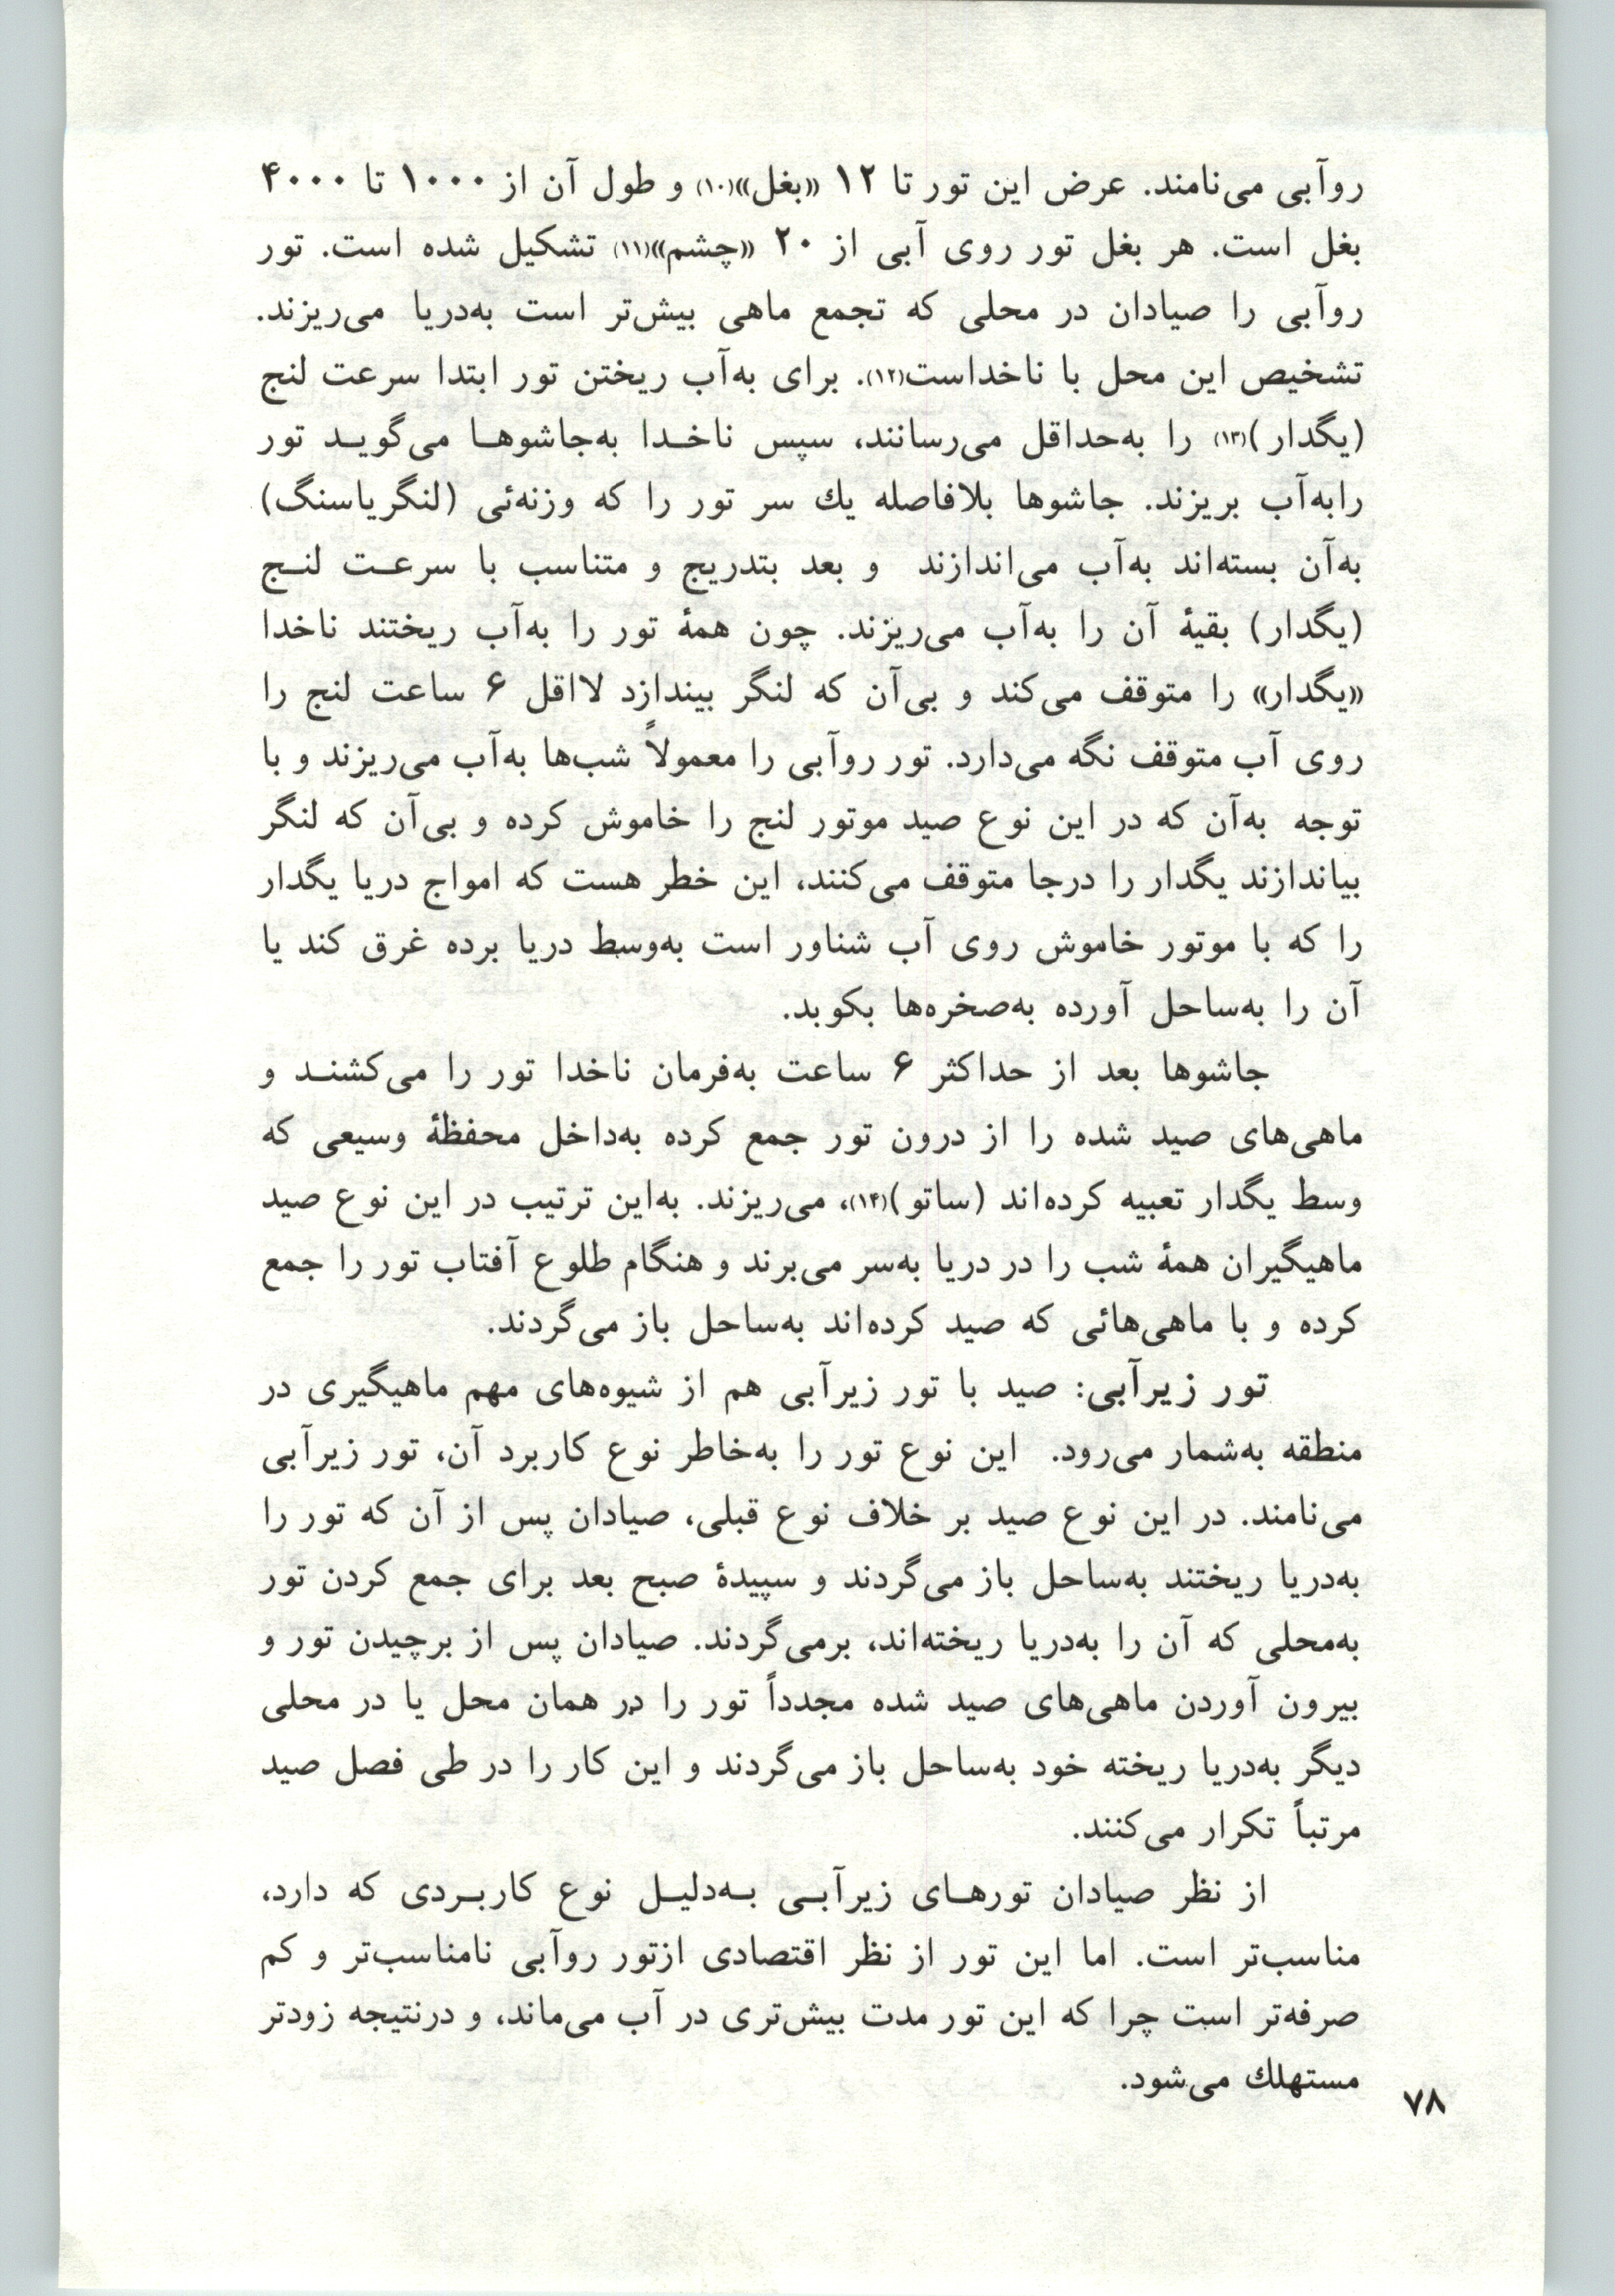 روآبی می‌نامند. عرض این تور تا ۱۲ «بغل»(۱۰) و طول آن از ۱۰۰۰ تا ۴۰۰۰
بغل است. هر بغل تور روی آبی از ۲۰ «چشم»(۱۱) تشکیل شده است. تور
روآبی را صیادان در محلی که تجمع ماهی بیش‌تر است به‌دریا می‌ریزند.
تشخیص این محل با ناخداست(۱۲). برای به‌آب ریختن تور ابتدا سرعت لنج
(یگدار)(۱۳) را به‌حداقل می‌رسانند، سپس ناخـدا به‌جاشوهـا می‌گویـد تور
رابه‌آب بریزند. جاشوها بلافاصله یك سر تور را که وزنه‌ئی (لنگریاسنگ)
به‌آن بسته‌اند به‌آب می‌اندازند و بعد بتدریج و متناسب با سرعـت لنـج
(یگدار) بقیهٔ آن را به‌آب می‌ریزند. چون همهٔ تور را به‌آب ریختند ناخدا
«یگدار» را متوقف می‌کند و بی‌آن که لنگر بیندازد لااقل ۶ ساعت لنج را
روی آب متوقف نگه می‌دارد. تور روآبی را معمولاً شب‌ها به‌آب می‌ریزند و با
توجه به‌آن که در این نوع صید موتور لنج را خاموش کرده و بی‌آن که لنگر
بیاندازند یگدار را درجا متوقف می‌کنند، این خطر هست که امواج دریا یگدار
را که با موتور خاموش روی آب شناور است به‌وسط دریا برده غرق کند یا
آن را به‌ساحل آورده به‌صخره‌ها بکوبد.
جاشوها بعد از حداکثر ۶ ساعت به‌فرمان ناخدا تور را می‌کشنـد و
ماهی‌های صید شده را از درون تور جمع کرده به‌داخل محفظهٔ وسیعی که
وسط یگدار تعبیه کرده‌اند (ساتو)(۱۴)، می‌ریزند. به‌این ترتیب در این نوع صید
ماهیگیران همهٔ شب را در دریا به‌سر می‌برند و هنگام طلوع آفتاب تور را جمع
کرده و با ماهی‌هائی که صید کرده‌اند به‌ساحل باز می‌گردند.
تور زیرآبی: صید با تور زیرآبی هم از شیوه‌های مهم ماهیگیری در
منطقه به‌شمار می‌رود. این نوع تور را به‌خاطر نوع کاربرد آن، تور زیرآبی
می‌نامند. در این نوع صید بر خلاف نوع قبلی، صیادان پس از آن که تور را
به‌دریا ریختند به‌ساحل باز می‌گردند و سپیدهٔ صبح بعد برای جمع کردن تور
به‌محلی که آن را به‌دریا ریخته‌اند، برمی‌گردند. صیادان پس از برچیدن تور و
بیرون آوردن ماهی‌های صید شده مجدداً تور را در همان محل یا در محلی
دیگر به‌دریا ریخته خود به‌ساحل باز می‌گردند و این کار را در طی فصل صید
مرتباً تکرار می‌کنند.
از نظر صیادان تورهـای زیرآبـی بـه‌دلیـل نوع کاربـردی که دارد،
مناسب‌تر است. اما این تور از نظر اقتصادی ازتور روآبی نامناسب‌تر و کم
صرفه‌تر است چرا که این تور مدت بیش‌تری در آب می‌ماند، و درنتیجه زودتر
مستهلك می‌شود.
۷۸